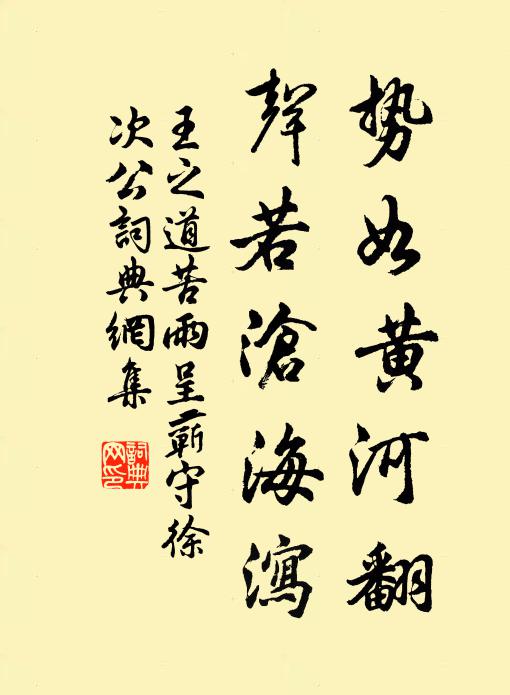 势如黄河翻
聲若滄海瀉
王之道苦雨呈蘄守徐
次公詞典網集
詞典
网印